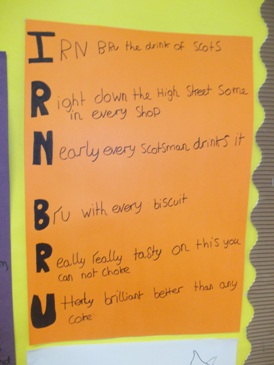 IRN BRU the drink of Scots
Right down the High Street Some
in every shop
Nearly every Scotsman drinks it
Bru with every biscuit
Really really tasty on this you
can not choke
Utterly brilliant better than any
coke